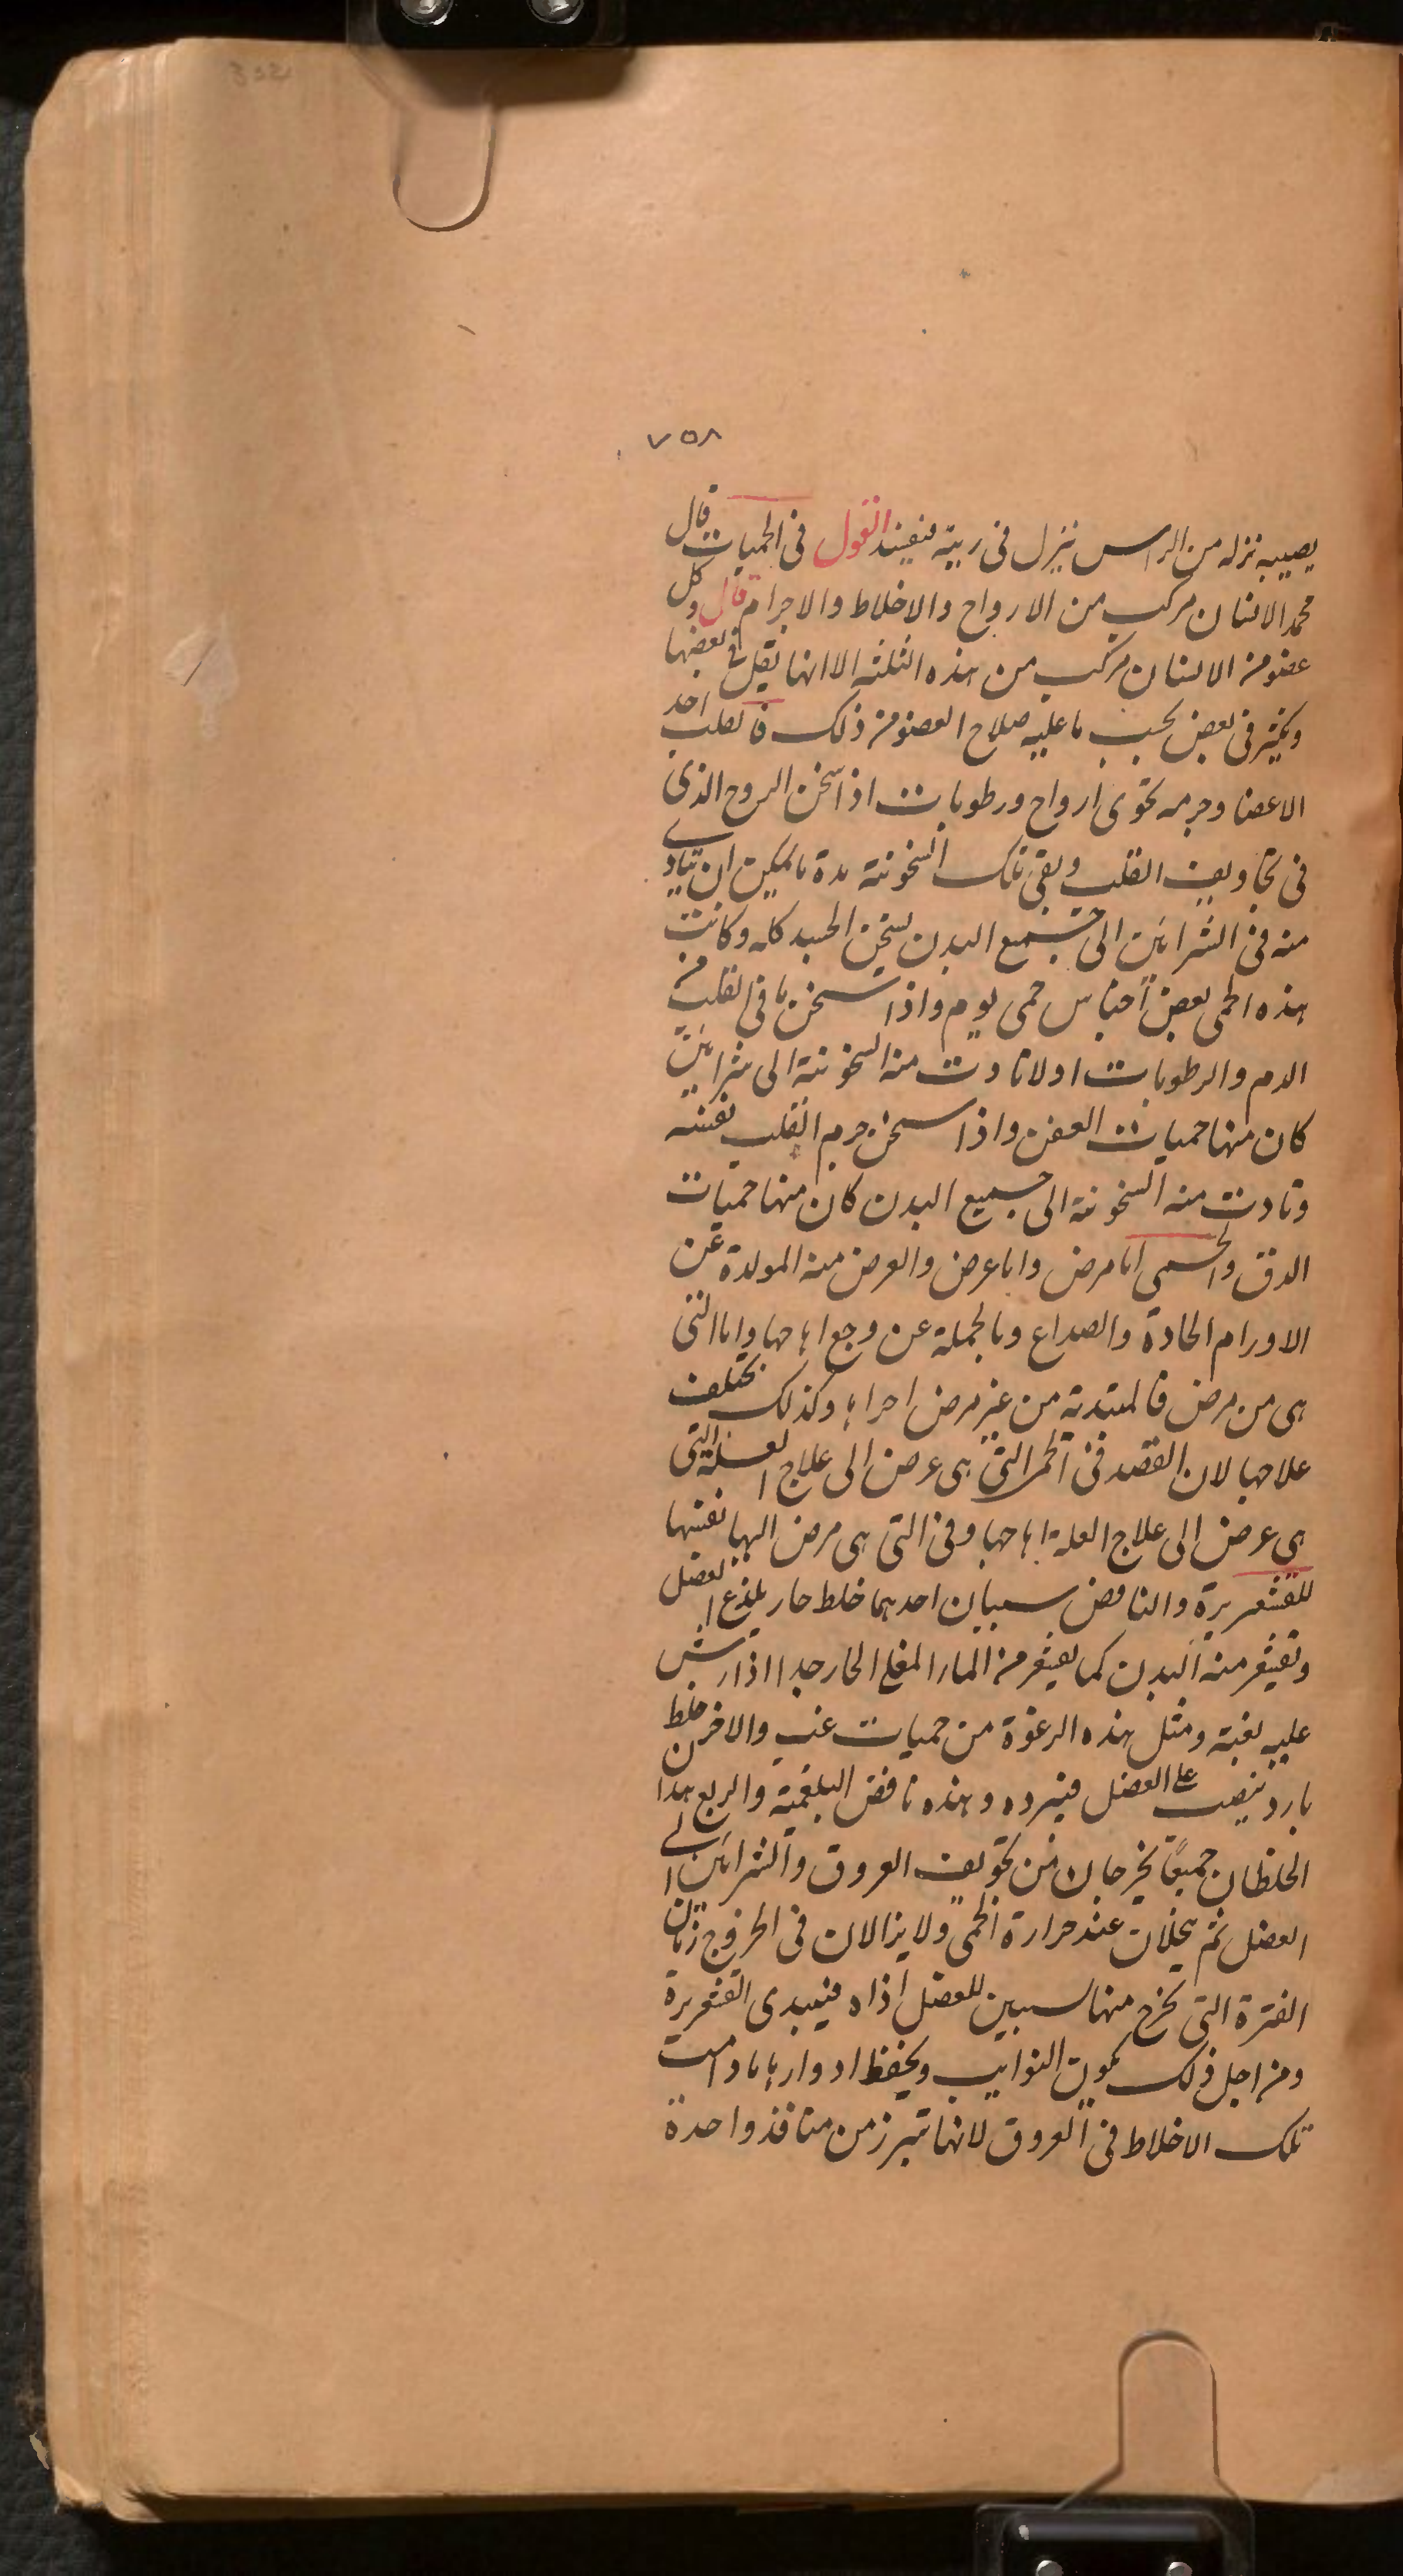 ٧٥٨
يصيبه نزله من الراس ينزل فى ريته فيفسد القول فى الحميات قال
محمد الانسان مركب من الارواح والاخلاط والاجرام قال وكل
عضو من الانسان مركب من هذه الثلثه الا انها يقل فى بعضها
ويكثر فى بعض بحسب ما عليه صلاح العضو من ذلك فالقلب احد
الاعضا وجرمه يحوى ارواح ورطوبات اذا سخن الروح الذى
فى تجاويف القلب وبقى تلك السخونته مدة ما يمكن ان يتادى
منه فى الشرائين الى جميع البدن يسخن الجسد كله وكانت
هذه الحمى بعض اجناس حمى يوم واذا سخن ما فى القلب من
الدم والرطوبات اولا تادت منه السخونته الى شرائين
كان منها حميات العفن واذا سخن جرم القلب نفسه
وتادت منه السخونته الى جميع البدن كان منها حميات
الدق والحمى اما مرض واما عرض والعرض منه المولدة عن
الاورام الحادة والصداع وبالجملة عن وجع اهاجها واما التى
هى من مرض فالمبتدية من غير مرض اخراها وكذلك يختلف
علاجها لان القصد فى الحمى التى هى عرض الى علاج العلة التى
هى عرض الى علاج العلة اهاجها وفى التى هى مرض اليها نفسها
للقشعريرة والنافض سببان احدهما خلط حار يلذع العضل
وتقشعر منه البدن كما يقشعر من الماء المغلى الحار جدا اذا رش
عليه بغتة ومثل هذه الرعدة من حميات غب والاخر من خلط
بارد ينصب على العضل فيبرده وهذه نافض البلغمية والربع هذا
الخلطان جميعًا يخرجان من تجويف العروق والشرائين الى
العضل ثم يحلان عند حرارة الحمى ولا يزالان فى الخروج زمان
الفترة التى يخرج منها سببين للعضل اذاه فيبدى القشعريرة
ومن اجل ذلك يكون النوايب ويحفظ ادوارها ما دامت
تلك الاخلاط فى العروق لانها تبرز من منافذ واحدة